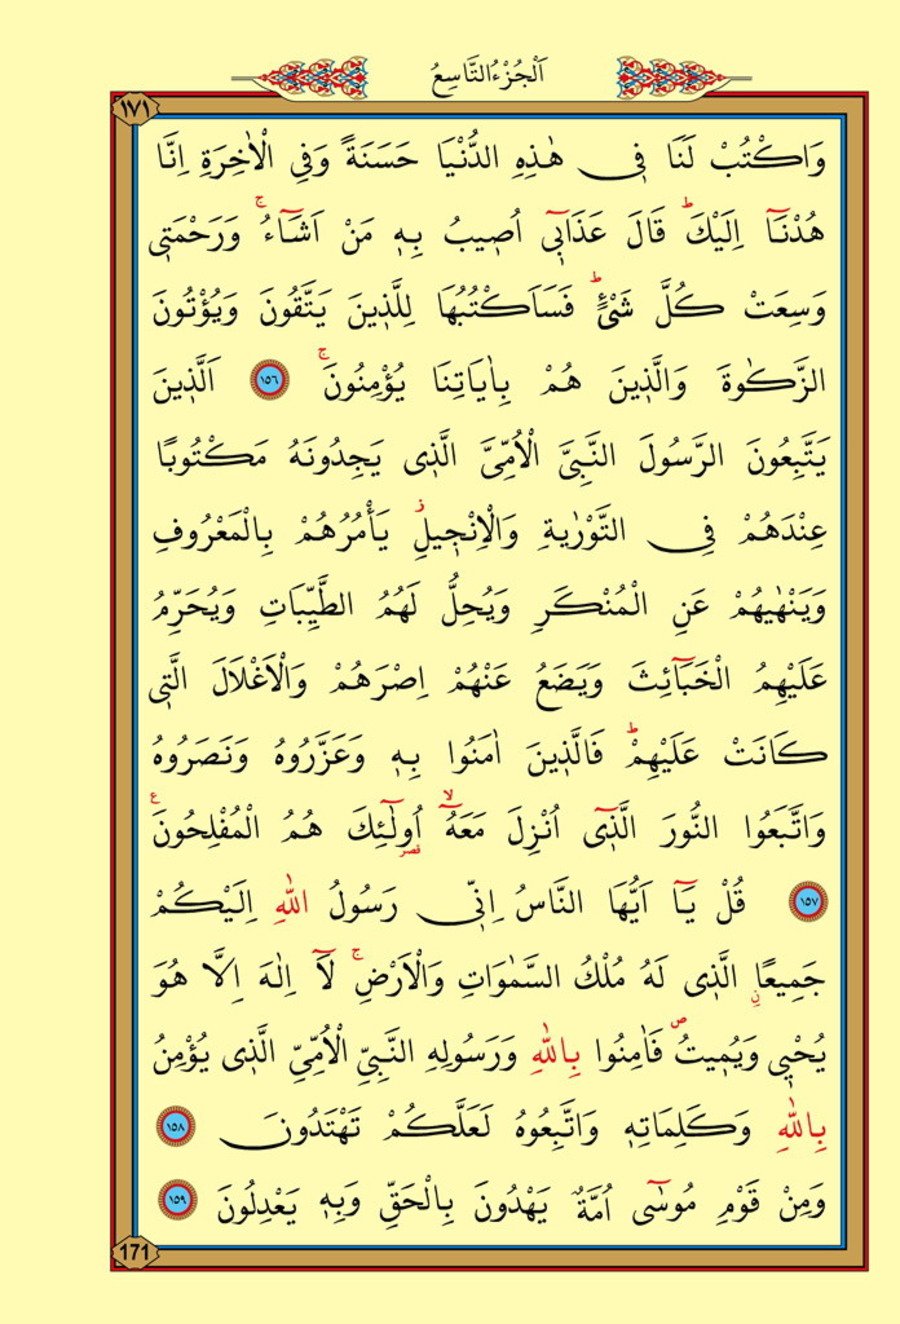 اَلْجُزْءُ التَّاسِعُ
١٧١
وَاكْتُبْ لَنَا فٖي هٰذِهِ الدُّنْيَا حَسَنَةً وَفِي الْاٰخِرَةِ اِنَّا
هُدْنَٓا اِلَيْكَۜ قَالَ عَذَابٖٓي اُصٖيبُ بِهٖ مَنْ اَشَٓاءُۚ وَرَحْمَتٖي
وَسِعَتْ كُلَّ شَيْءٍۜ فَسَاَكْتُبُهَا لِلَّذٖينَ يَتَّقُونَ وَيُؤْتُونَ
الزَّكٰوةَ وَالَّذٖينَ هُمْ بِاٰيَاتِنَا يُؤْمِنُونَۚ ١٥٦ اَلَّذٖينَ
يَتَّبِعُونَ الرَّسُولَ النَّبِيَّ الْاُمِّيَّ الَّذٖي يَجِدُونَهُ مَكْتُوبًا
عِنْدَهُمْ فِي التَّوْرٰيةِ وَالْاِنْجٖيلِؗ يَأْمُرُهُمْ بِالْمَعْرُوفِ
وَيَنْهٰيهُمْ عَنِ الْمُنْكَرِ وَيُحِلُّ لَهُمُ الطَّيِّبَاتِ وَيُحَرِّمُ
عَلَيْهِمُ الْخَبَٓائِثَ وَيَضَعُ عَنْهُمْ اِصْرَهُمْ وَالْاَغْلَالَ الَّتٖي
كَانَتْ عَلَيْهِمْۜ فَالَّذٖينَ اٰمَنُوا بِهٖ وَعَزَّرُوهُ وَنَصَرُوهُ
وَاتَّبَعُوا النُّورَ الَّذٖٓي اُنْزِلَ مَعَهُٓۙ اُولٰٓئِكَ هُمُ الْمُفْلِحُونَ ع
قصر
١٥٧ قُلْ يَٓا اَيُّهَا النَّاسُ اِنّٖي رَسُولُ اللّٰهِ اِلَيْكُمْ
جَمٖيعًاۨ الَّذٖي لَهُ مُلْكُ السَّمٰوَاتِ وَالْاَرْضِۚ لَٓا اِلٰهَ اِلَّا هُوَ
يُحْيٖي وَيُمٖيتُ ص فَاٰمِنُوا بِاللّٰهِ وَرَسُولِهِ النَّبِيِّ الْاُمِّيِّ الَّذٖي يُؤْمِنُ
بِاللّٰهِ وَكَلِمَاتِهٖ وَاتَّبِعُوهُ لَعَلَّكُمْ تَهْتَدُونَ ١٥٨
وَمِنْ قَوْمِ مُوسٰٓى اُمَّةٌ يَهْدُونَ بِالْحَقِّ وَبِهٖ يَعْدِلُونَ ١٥٩
171